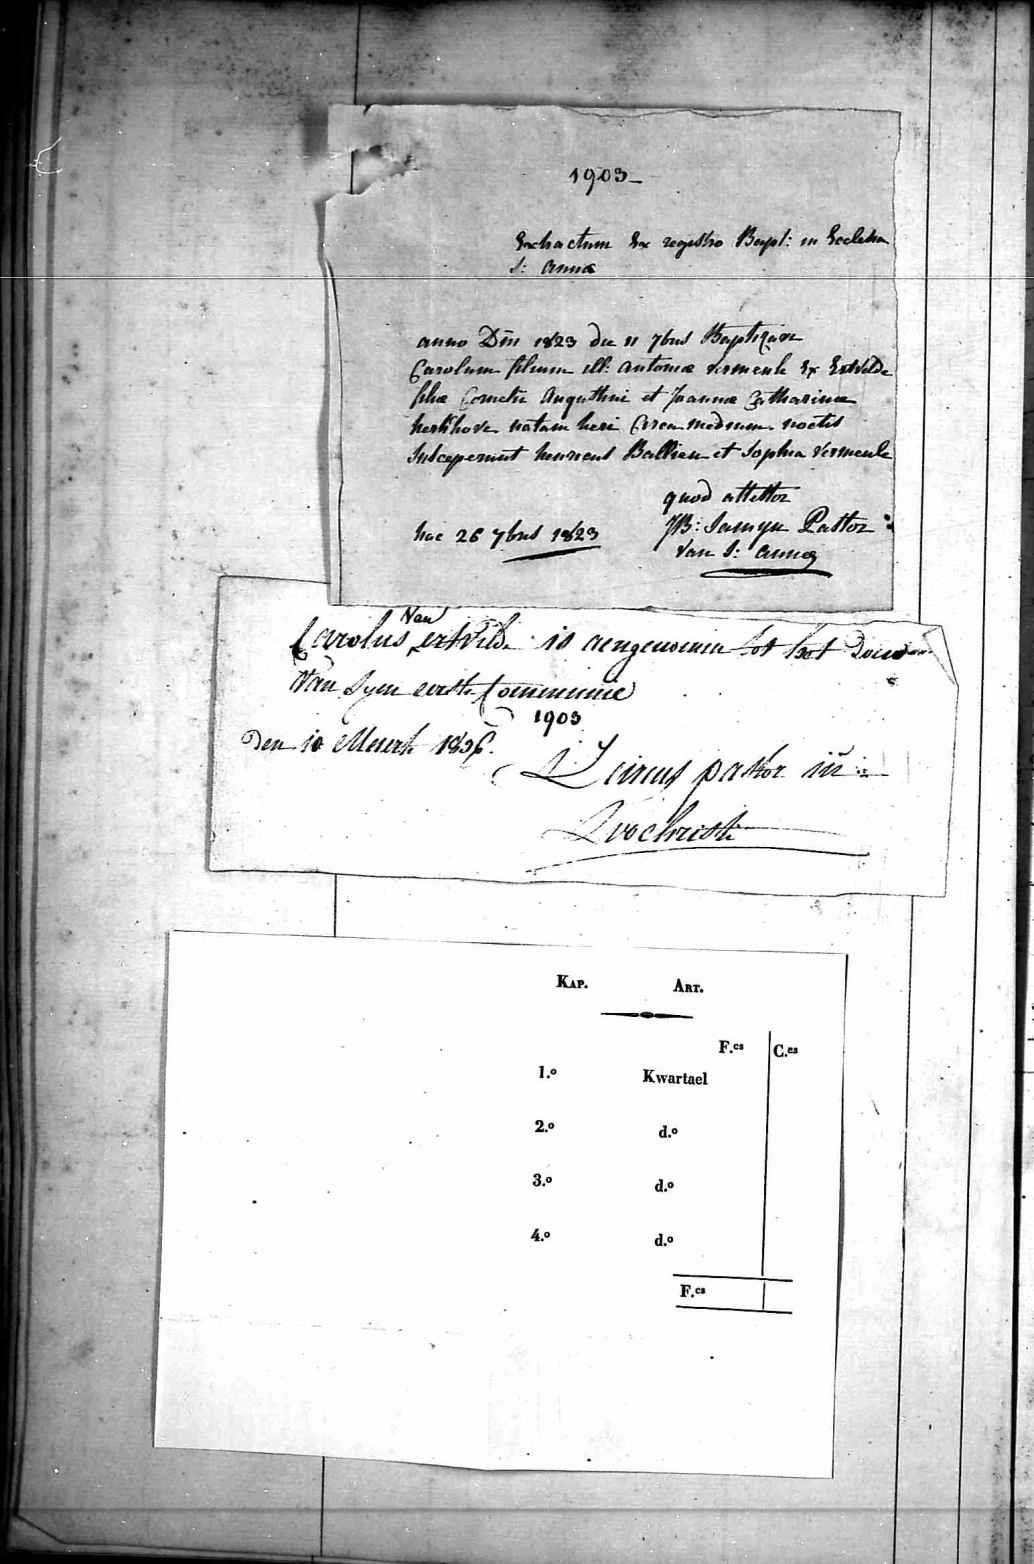 1903
Extractum Ex registro Bapt: in Ecclesia
S: Annæ
anno Dni 1823 die 11 7bris Baptizavi
Carolum filium ill: Antoniæ Vermeule Ex Ertvelde
filiæ Cornelii Augustini et Joannæ Catharinæ
kerkhove natam heri Circa medium noctis
Susceperunt henricus Ballieu et Sophia Vermeule
quod attestor
hac 26 7bris 1823 JB: Samyn Pastor
van S: Anna
Van
Carolus ertvelde is aengenomen tot het doen
Van Syn eerste Communie
1903
Den 10 Meert 1836.
pastor in
Lovochristi
KAP. ART.
F.cs C.es
1.o Kwartael
2.o d.o
3.o d.o
4.o d.o
F.cs